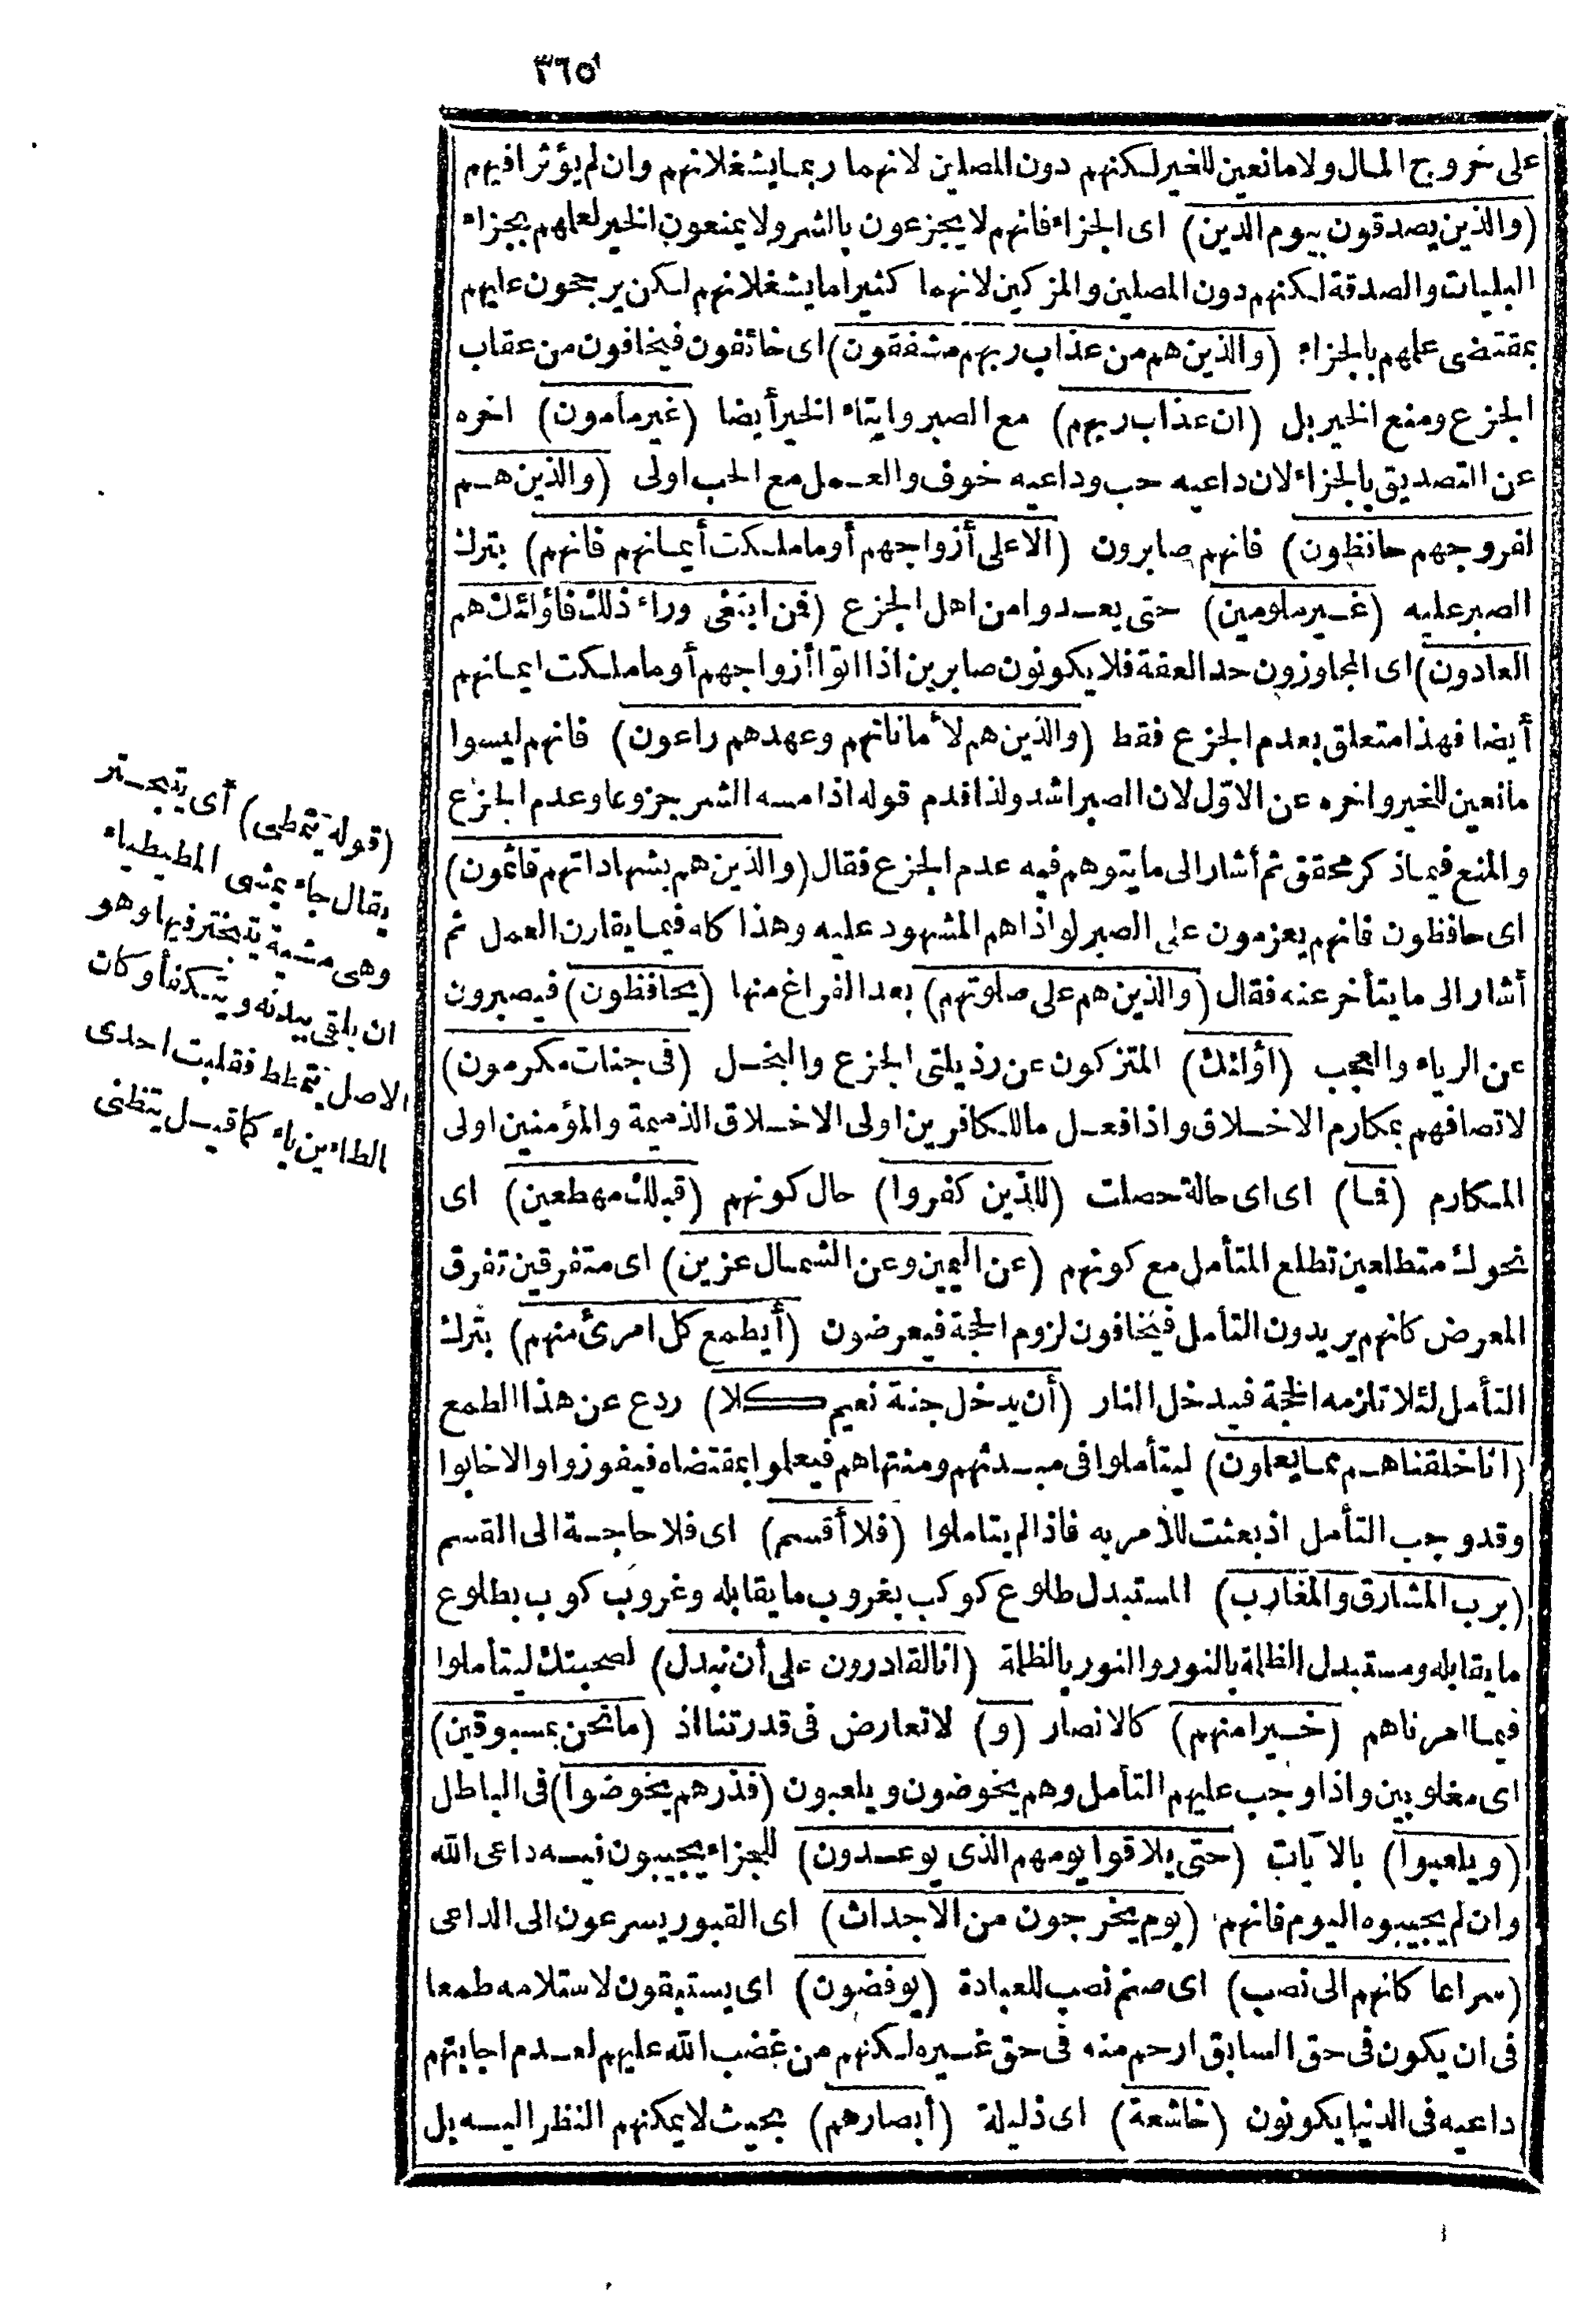 ٣٦٥
على خروج المال ولا مانعين للخير لكنهم دون المصلين لانهما ربما يشغلانهم وان لم يؤثرا فيهم
(والذين يصدقون بيوم الدين) اى الجزاء فانهم لا يجزعون بالشر ولا يمنعون الخير لعلهم بجزاء
البليات والصدقة لكنهم دون المصلين والمزكين لانهما كثيرا ما يشغلانهم لكن يرجحون عليهم
بمقتضى علمهم بالجزاء (والذين هم من عذاب ربهم مشفقون) اى خائفون فيخافون من عقاب
الجزع ومنع الخير بل (ان عذاب ربهم) مع الصبر وايتاء الخير أيضا (غير مأمون) اخره
عن التصديق بالجزاء لان داعيه حب وداعيه خوف والعمل مع الحب اولى (والذين هم
لفروجهم حافظون) فانهم صابرون (الا على أزواجهم أو ما ملكت أيمانهم فانهم) بترك
الصبر عليه (غير ملومين) حتى يعدوا من اهل الجزع (فمن ابتغى وراء ذلك فأولئك هم
العادون) اى المجاوزون حد العفة فلا يكونون صابرين اذا اتوا أزواجهم أو ما ملكت ايمانهم
أيضا فهذا متعلق بعدم الجزع فقط (والذين هم لأماناتهم وعهدهم راعون) فانهم ليسوا
مانعين للخير واخره عن الاوّل لان الصبر اشد ولذا قدم قوله اذا مسه الشر جزوعا وعدم الجزع
والمنع فيما ذكر محقق ثم أشار الى ما يتوهم فيه عدم الجزع فقال (والذين هم بشهاداتهم قائمون)
اى حافظون فانهم يعزمون على الصبر لو اذاهم المشهود عليه وهذا كله فيما يقارن العمل ثم
أشار الى ما يتأخر عنه فقال (والذين هم على صلوتهم) بعد الفراغ منها (يحافظون) فيصبرون
عن الرياء والعجب (أولئك) المتزكون عن رذيلتى الجزع والبخل (فى جنات مكرمون)
لاتصافهم بمكارم الاخلاق واذا فعل ما للكافرين اولى الاخلاق الذميمة والمؤمنين اولى
المكارم (فما) اى اى حالة حصلت (للذين كفروا) حال كونهم (قبلك مهطعين) اى
نحوك متطلعين تطلع المتأمل مع كونهم (عن اليمين وعن الشمال عزين) اى متفرقين تفرق
المعرض كانهم يريدون التأمل فيخافون لزوم الحجة فيعرضون (أيطمع كل امرئ منهم) بترك
التأمل لئلا تلزمه الحجة فيدخل النار (أن يدخل جنة نعيم كلا) ردع عن هذا الطمع
(انا خلقناهم مما يعلمون) ليتأملوا فى مبدئهم ومنتهاهم فيعملوا بمقتضاه فيفوزوا والا خابوا
وقد وجب التأمل اذ بعثت للأمر به فاذا لم يتاملوا (فلا أقسم) اى فلا حاجة الى القسم
(برب المشارق والمغارب) المستبدل طلوع كوكب بغروب ما يقابله وغروب كوب بطلوع
ما يقابله ومستبدل الظلمة بالنور والنور بالظلمة (انا لقادرون على أن نبدل) لصحبتك ليتأملوا
فيما امرناهم (خيرا منهم) كالانصار (و) لا تعارض فى قدرتنا اذ (ما نحن بمسبوقين)
اى مغلوبين واذا وجب عليهم التأمل وهم يخوضون ويلعبون (فذرهم يخوضوا) فى الباطل
(ويلعبوا) بالآيات (حتى يلاقوا يومهم الذى يوعدون) للجزاء يجيبون فيه داعى الله
وان لم يجيبوه اليوم فانهم (يوم يخرجون من الاجداث) اى القبور يسرعون الى الداعى
(سراعا كانهم الى نصب) اى صنم نصب للعبادة (يوفضون) اى يستبقون لاستلامه طمعا
فى ان يكون فى حق السابق ارحم منه فى حق غيره لكنهم من غضب الله عليهم لعدم اجابتهم
داعيه فى الدنيا يكونون (خاشعة) اى ذليلة (أبصارهم) بحيث لا يمكنهم النظر اليه بل
(قوله يتمطى) أى يتبختر
يقال جاء يمشى المطيطياء
وهى مشية يتبختر فيها وهو
ان يلقى بيدنه ويتكفأ وكان
الاصل يتمطط فقلبت احدى
الطاءين ياء كما قيل يتظنى